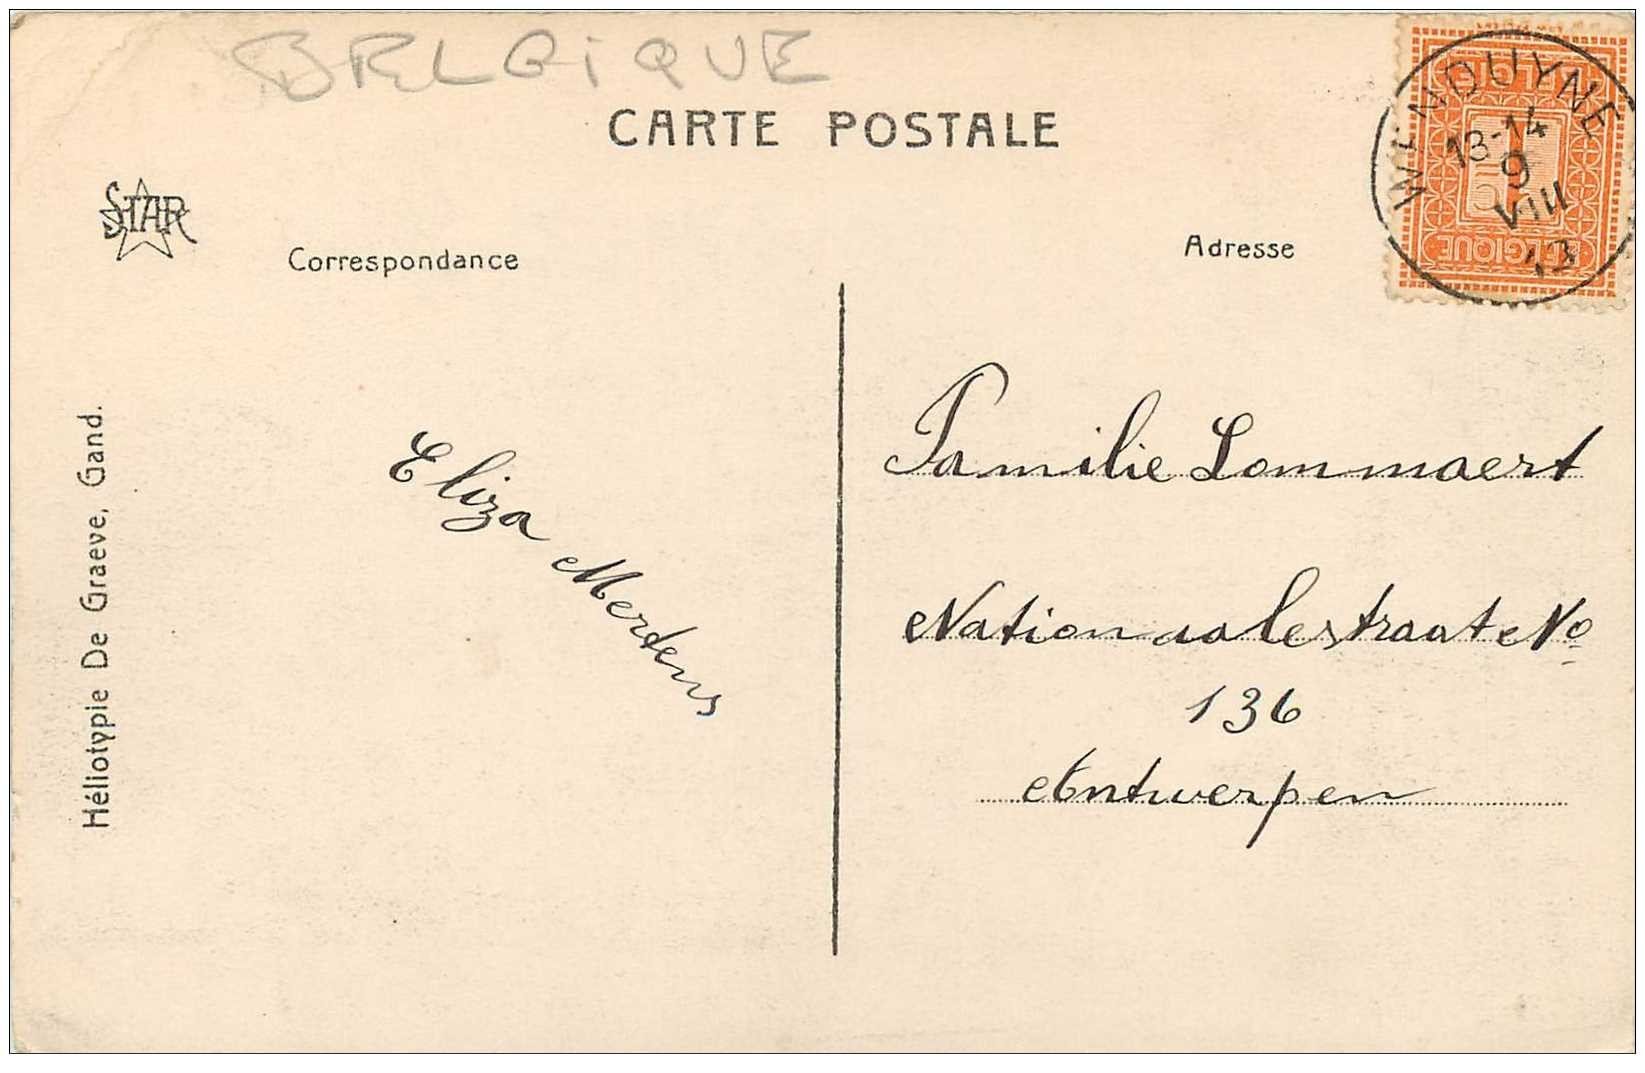 BELGIQUE
CARTE POSTALE
STAR
Correspondance
Adresse
WENDUYNE
13-14
9
VIII
13
BELGIE
1
BELGIQUE
Héliotypie De Graeve, Gand.
Eliza Mertens
Familie Lommaert
Nationaalestraat No
136
Antwerpen